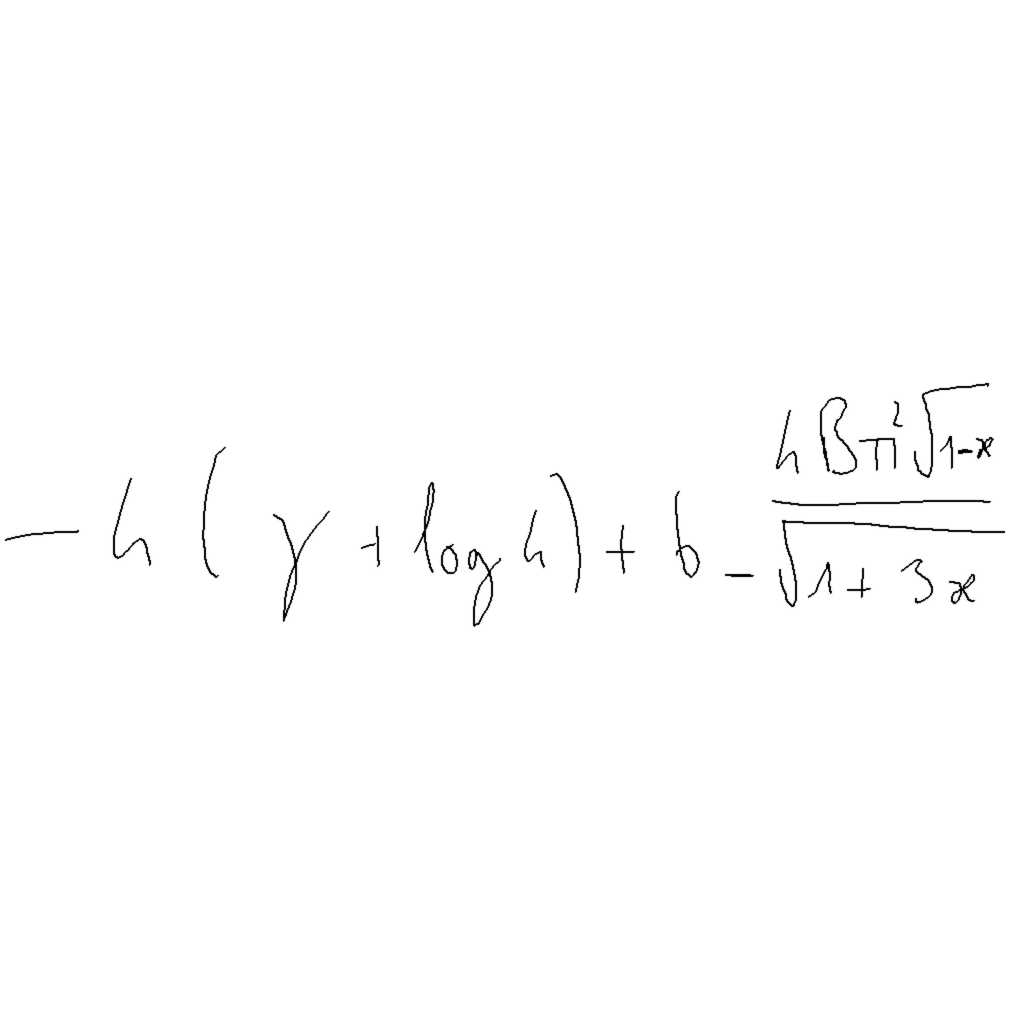 -h(γ + log h) + b - \frac{hBπ^2\sqrt{1-x}}{\sqrt{1+3x}}